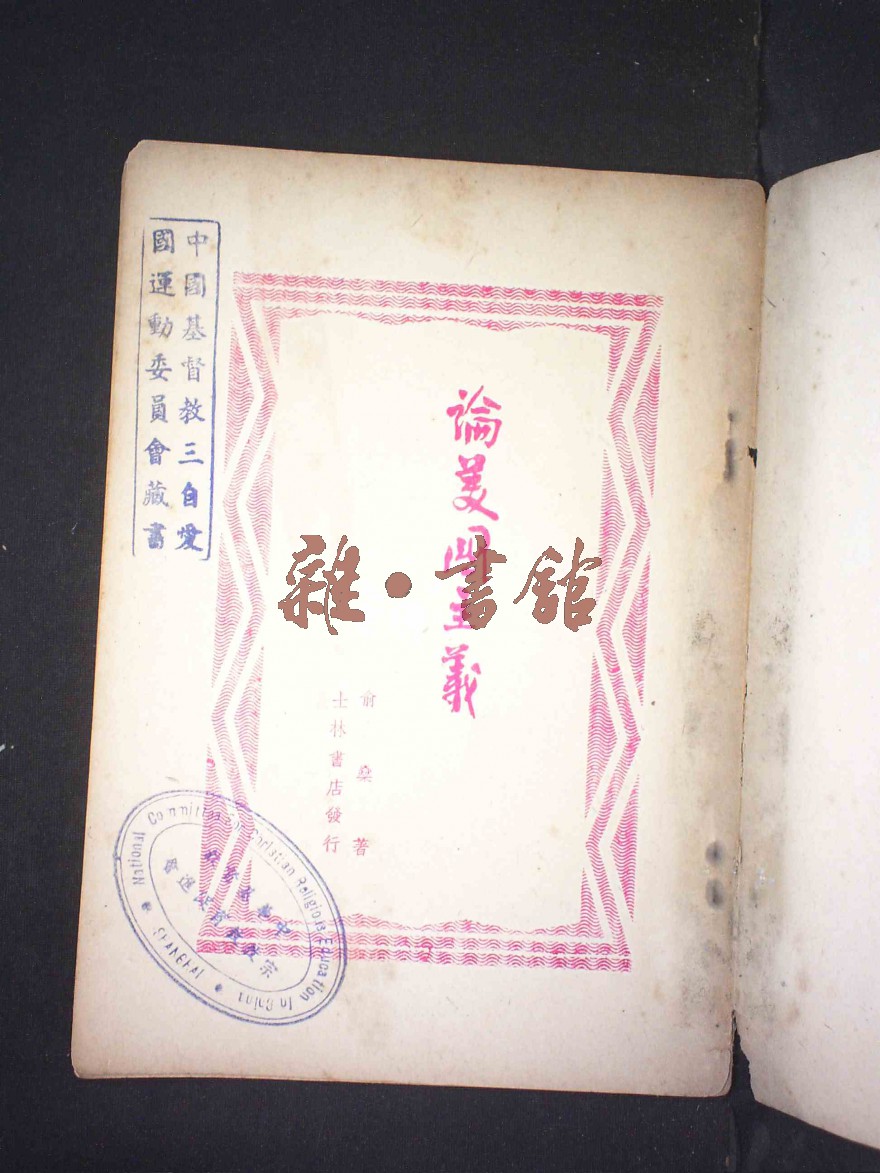 中國基督教三自愛
國運動委員會藏書
論美國主義
俞桑著
士林書店發行
雜•書館
National Committee Christian Religious Education In China
SHANGHAI
中華基督教
宗教教育促進會